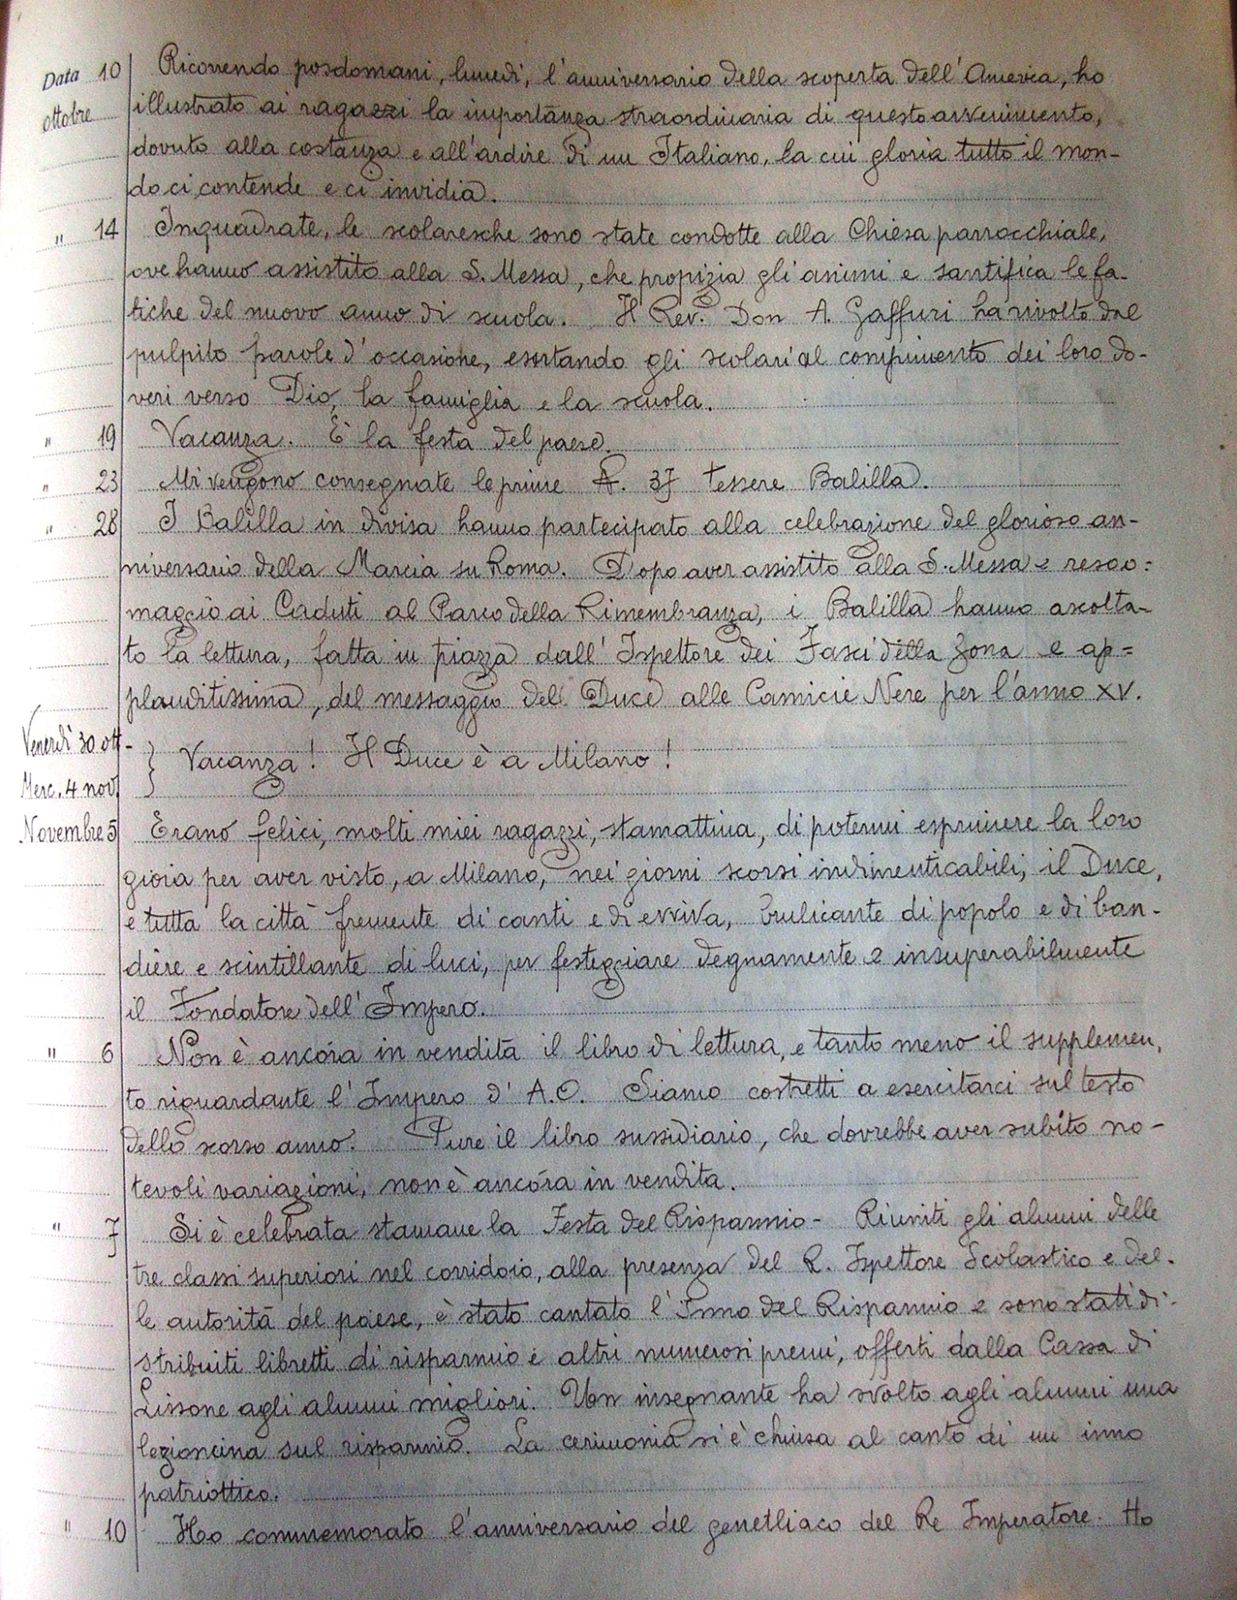 Data 10 Ricorrendo posdomani, lunedì, l'anniversario della scoperta dell'America, ho
ottobre illustrato ai ragazzi la importanza straordinaria di questo avvenimento,
dovuto alla costanza e all'ardire di un Italiano, la cui gloria tutto il mon-
do ci contende e ci invidia.
" 14 Inquadrate, le scolaresche sono state condotte alla Chiesa parrocchiale,
ove hanno assistito alla S. Messa, che propizia gli animi e santifica le fa-
tiche del nuovo anno di scuola. Il Rev. Don A. Gaffuri ha rivolto dal
pulpito parole d'occasione, esortando gli scolari al compimento dei loro do-
veri verso Dio, la famiglia e la scuola.
" 19 Vacanza. È la festa del paese.
" 23 Mi vengono consegnate le prime 37 tessere Balilla.
" 28 I Balilla in divisa hanno partecipato alla celebrazione del glorioso an-
niversario della Marcia su Roma. Dopo aver assistito alla S. Messa e reso o=
maggio ai Caduti al Parco della Rimembranza, i Balilla hanno ascolta-
to la lettura, fatta in piazza dall'Ispettore dei Fasci della Zona e ap=
plauditissima, del messaggio del Duce alle Camicie Nere per l'anno XV.
Venerdì 30 ott-
} Vacanza! Il Duce è a Milano!
Merc. 4 nov.
Novembre 5 Erano felici, molti miei ragazzi, stamattina, di potermi esprimere la loro
gioia per aver visto, a Milano, nei giorni scorsi indimenticabili, il Duce,
e tutta la città fremente di canti e di evviva, brulicante di popolo e di ban-
diere e scintillante di luci, per festeggiare degnamente e insuperabilmente
il Fondatore dell'Impero.
" 6 Non è ancóra in vendita il libro di lettura, e tanto meno il supplemen,
to riguardante l'Impero d'A.O. Siamo costretti a esercitarci sul testo
dello scorso anno. Pure il libro sussidiario, che dovrebbe aver subìto no-
tevoli variazioni, non è ancóra in vendita.
" 7 Si è celebrata stamane la Festa del Risparmio - Riuniti gli alunni delle
tre classi superiori nel corridoio, alla presenza del R. Ispettore Scolastico e del-
le autorità del paese, è stato cantato l'Inno del Risparmio e sono stati di-
stribuiti libretti di risparmio e altri numerosi premi, offerti dalla Cassa di
Lissone agli alunni migliori. Un insegnante ha svolto agli alunni una
lezioncina sul risparmio. La cerimonia si è chiusa al canto di un inno
patriottico.
" 10 Ho commemorato l'anniversario del genetliaco del Re Imperatore. Ho